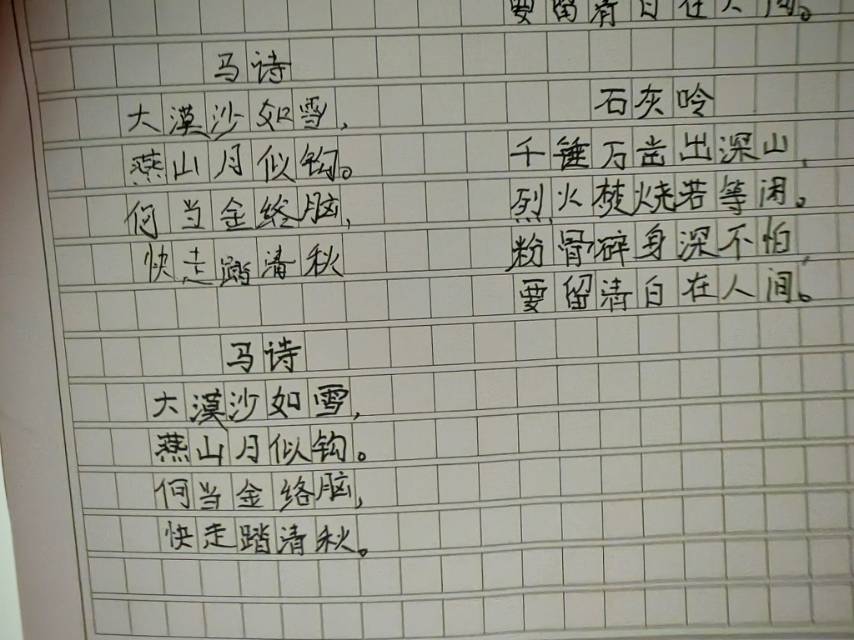 马诗
大漠沙如雪,
燕山月似钩。
何当金络脑,
快走踏清秋
马诗
大漠沙如雪,
燕山月似钩。
何当金络脑,
快走踏清秋。
要留清白在人间。
石灰呤
千锤万凿出深山,
烈火焚烧若等闲。
粉骨碎身深不怕,
要留清白在人间。